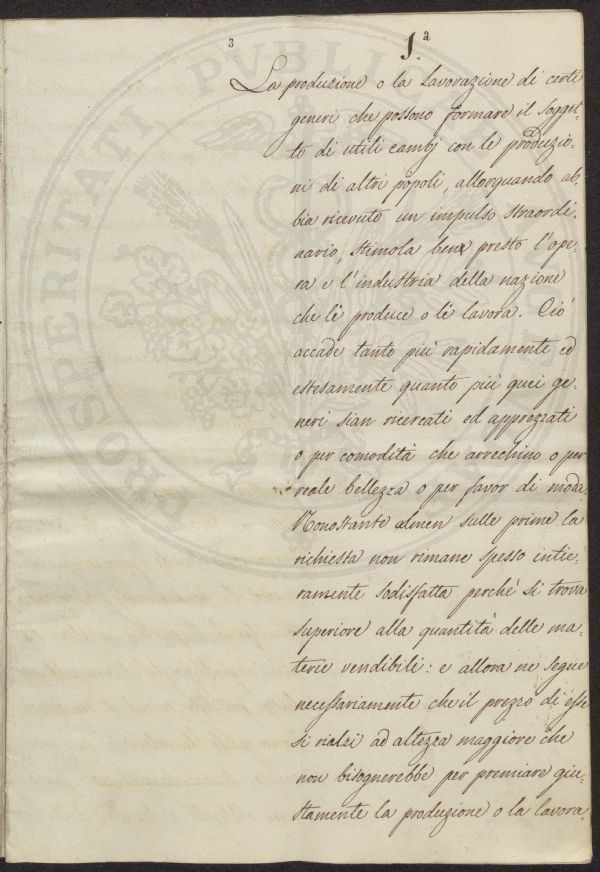 3
1.ª
La produzione o la lavorazione di certi
generi che possono formare il sogget-
to di utili cambj con le produzio-
ni di altri popoli, allorquando ab-
bia ricevuto un impulso straordi-
nario, stimola ben presto l'ope-
ra e l'industria della nazione
che le produce o le lavora. Ciò
accade tanto più rapidamente ed
estesamente quanto più quei ge-
neri sian ricercati ed apprezzati
o per comodità che arrechino o per
reale bellezza o per favor di moda.
Nonostante almen sulle prime la
richiesta non rimane spesso intie-
ramente sodisfatta perché si trova
superiore alla quantità delle ma-
terie vendibili: e allora ne segue
necessariamente che il prezzo di esse
si rialzi ad altezza maggiore che
non bisognerebbe per premiare giu-
stamente la produzione o la lavora-
PROSPERITATI PUBLI